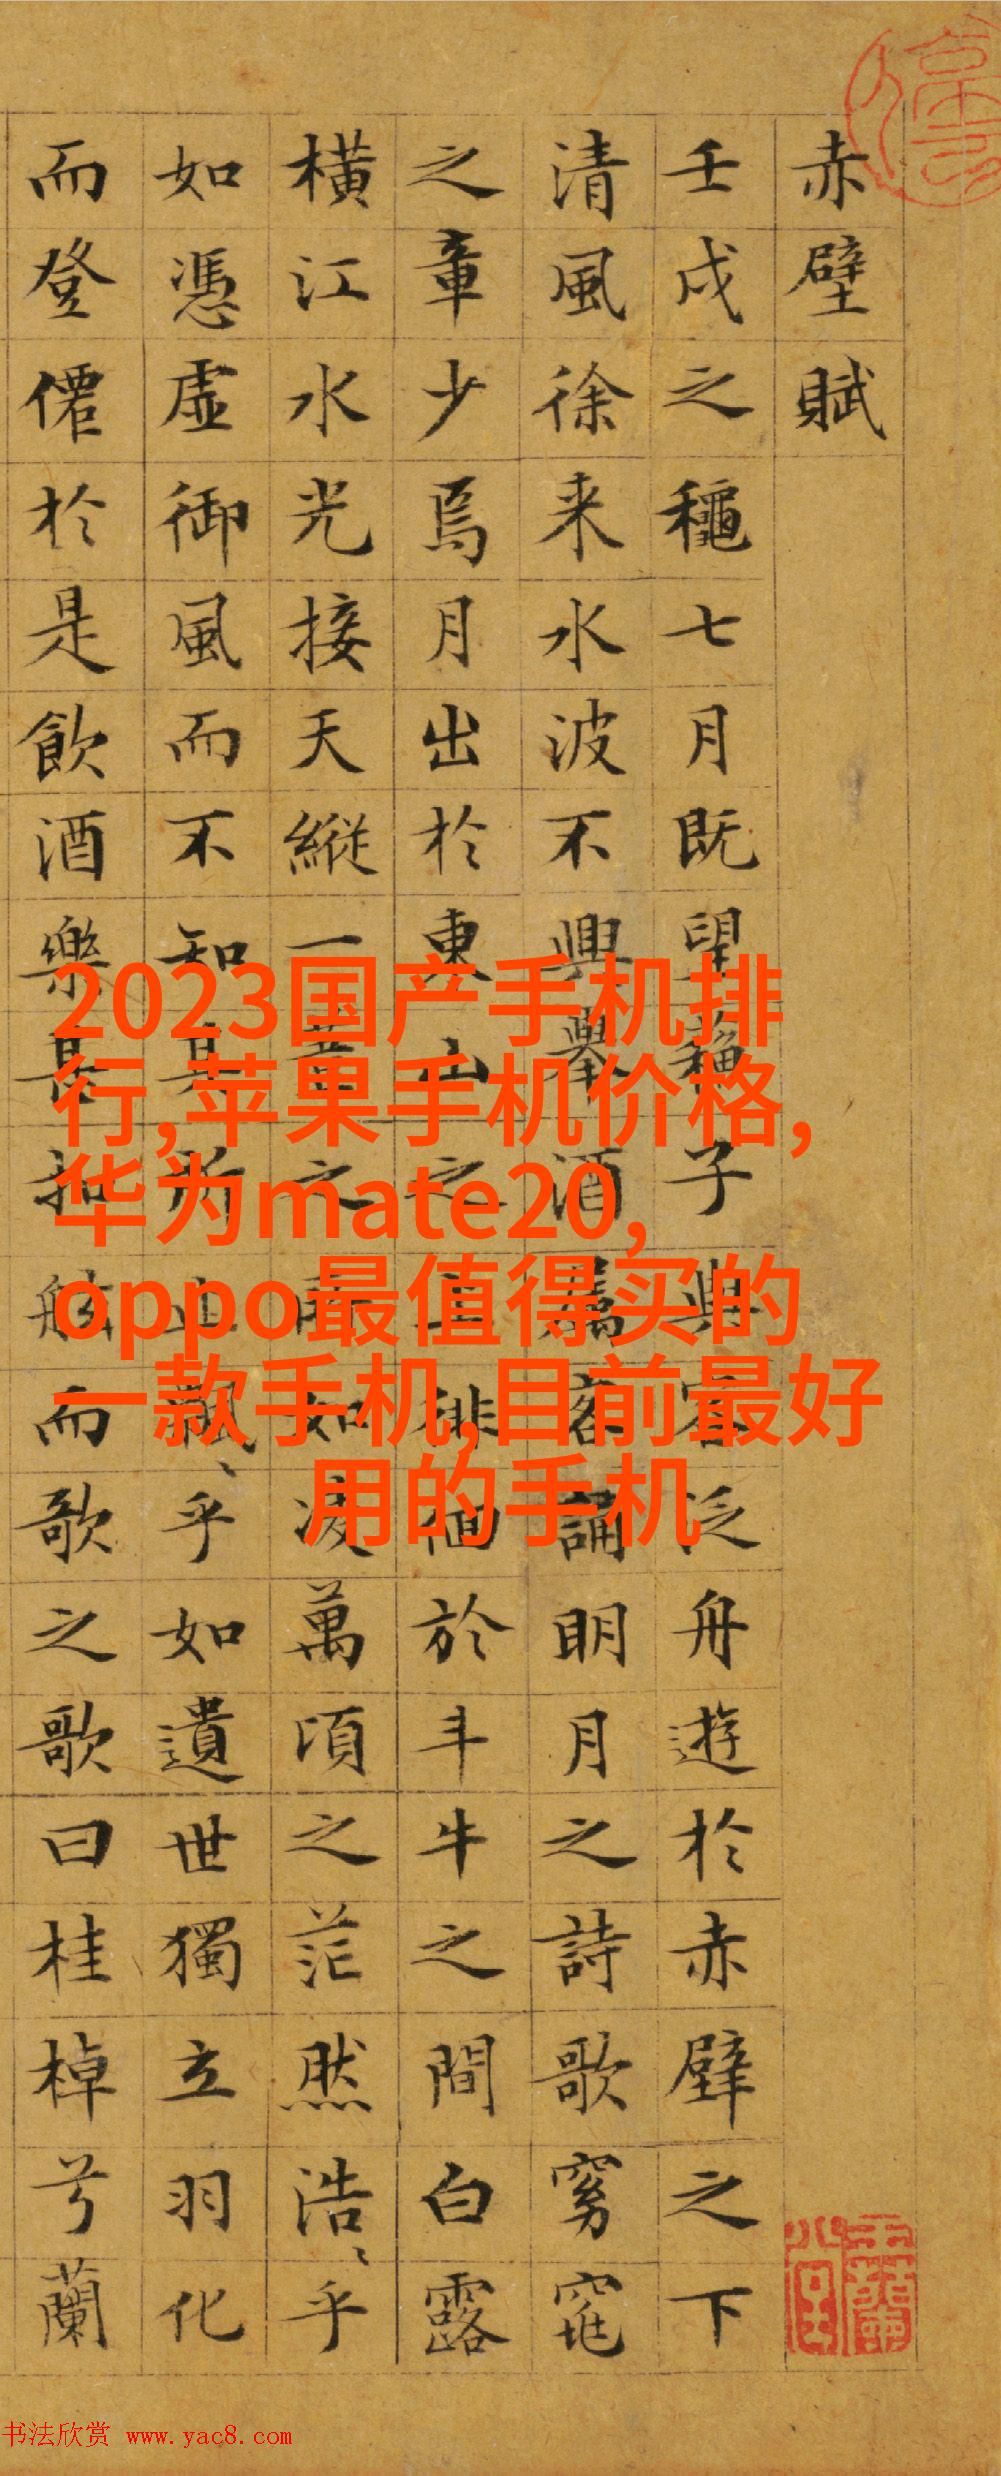 赤壁賦
壬戌之龝七月既望蘓子與客泛舟遊於赤壁之下
清風徐来水波不興舉酒屬客誦明月之詩歌窈窕
之章少焉月出於東山之上徘徊於斗牛之間白露
橫江水光接天縱一葦之所如凌萬頃之茫然浩〻乎
如憑虛御風而不知其所止飄〻乎如遺世獨立羽化
而登僊於是飲酒樂甚扣舷而歌之歌曰桂棹兮蘭
2023国产手机排
行,苹果手机价格,
华为mate20,
oppo最值得买的
一款手机,目前最好
用的手机
书法欣赏 www.yac8.com